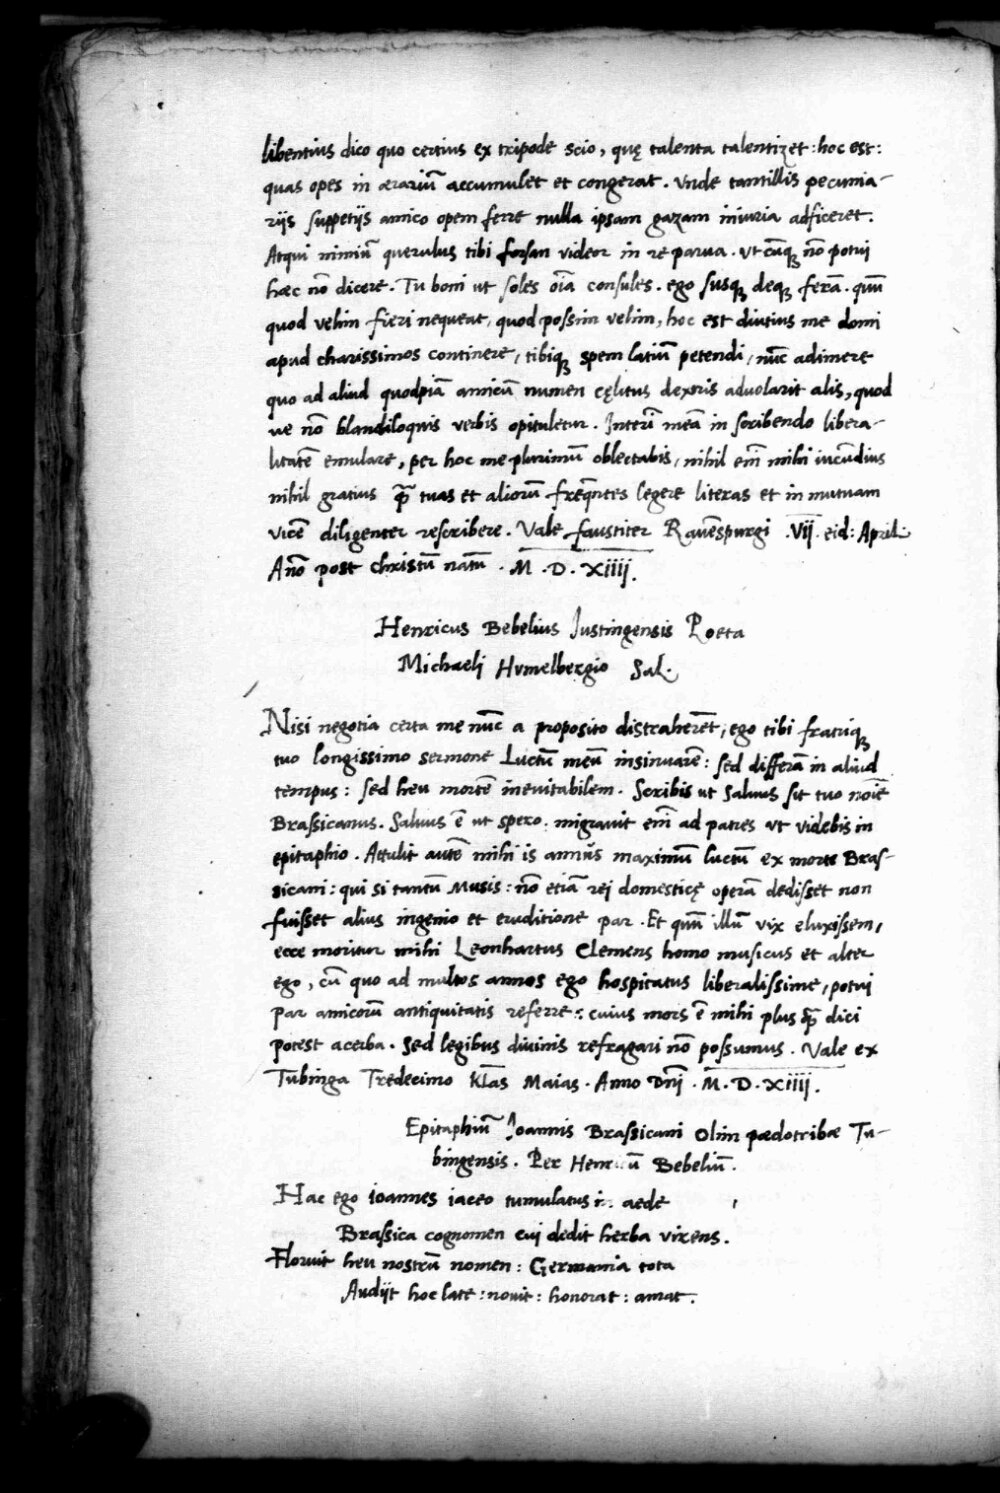 libentius dico quo certius ex tripode scio, quę talenta talentizet: hoc est:
quas opes in ærariū accumulet et congerat. Vnde tantillis pecunia-
rijs suppetijs amico opem ferre nulla ipsam gazam iniuria adficeret.
Atqui nimiū querulus tibi forsan videor in re parua. Vt cūqꝫ nō potui
hæc nō dicere. Tu boni ut soles oīa consules. ego susqꝫ deqꝫ ferā. quū
quod velim fieri nequeat, quod possim velim, hoc est diutius me domi
apud charissimos continere, tibiqꝫ spem latiū petendi, nūc adimere
quo ad aliud quodpiā amicū numen cęlitus dextris aduolarit alis, quod
ue nō blandiloquis verbis opituletur. Interī meā in scribendo libera-
litatē emulare, per hoc me plurimū oblectabis, nihil em̄ mihi iucūdius
nihil gratius q̄ꝫ tuas et aliorū freq̄ntes legere literas et in mutuam
vicē diligenter rescribere. Vale faustiter Rauēspurgi .VII. eid: April.
Año post Christū natū . M . D . XIIII.
Henricus Bebelius Iustingensis Poeta
Michaeli Hvmelbergio Sal.
Nisi negotia certa me nūc a proposito distraherēt, ego tibi fratriqꝫ
tuo longissimo sermone Luctū meū insinuarē: sed differā in aliud
tempus: sed heu mortē ineuitabilem. Scribis ut Saluus sit tuo noīe
Brassicanus. Saluus ē ut spero: migrauit em̄ ad patres ut videbis in
epitaphio. Attulit autē mihi is annus maximū luctū ex morte Bras-
sicani: qui si tantū Musis: nō etiā rei domesticę operā dedisset non
fuisset alius ingenio et eruditione par. Et quū illū vix eluxissem,
ecce moritur mihi Leonhartus Clemens homo musicus et alter
ego, cū quo ad multos annos ego hospitatus liberalissime, potui
par amicorū antiquitatis referre: cuius mors ē mihi plus q̄ꝫ dici
potest acerba. Sed legibus diuinis refragari nō possumus. Vale ex
Tubinga Tredecimo Kl̄as Maias. Anno Dn̄i . M . D . XIIII.
Epitaphiū Ioannis Brassicani Olim pædotribæ Tu-
bingensis. Per Henricū Bebeliū.
Hac ego Ioannes iaceo tumulatus in aede
Brassica cognomen cui dedit herba virens.
Floruit heu nostrū nomen: Germania tota
Audijt hoc late: nouit: honorat: amat.